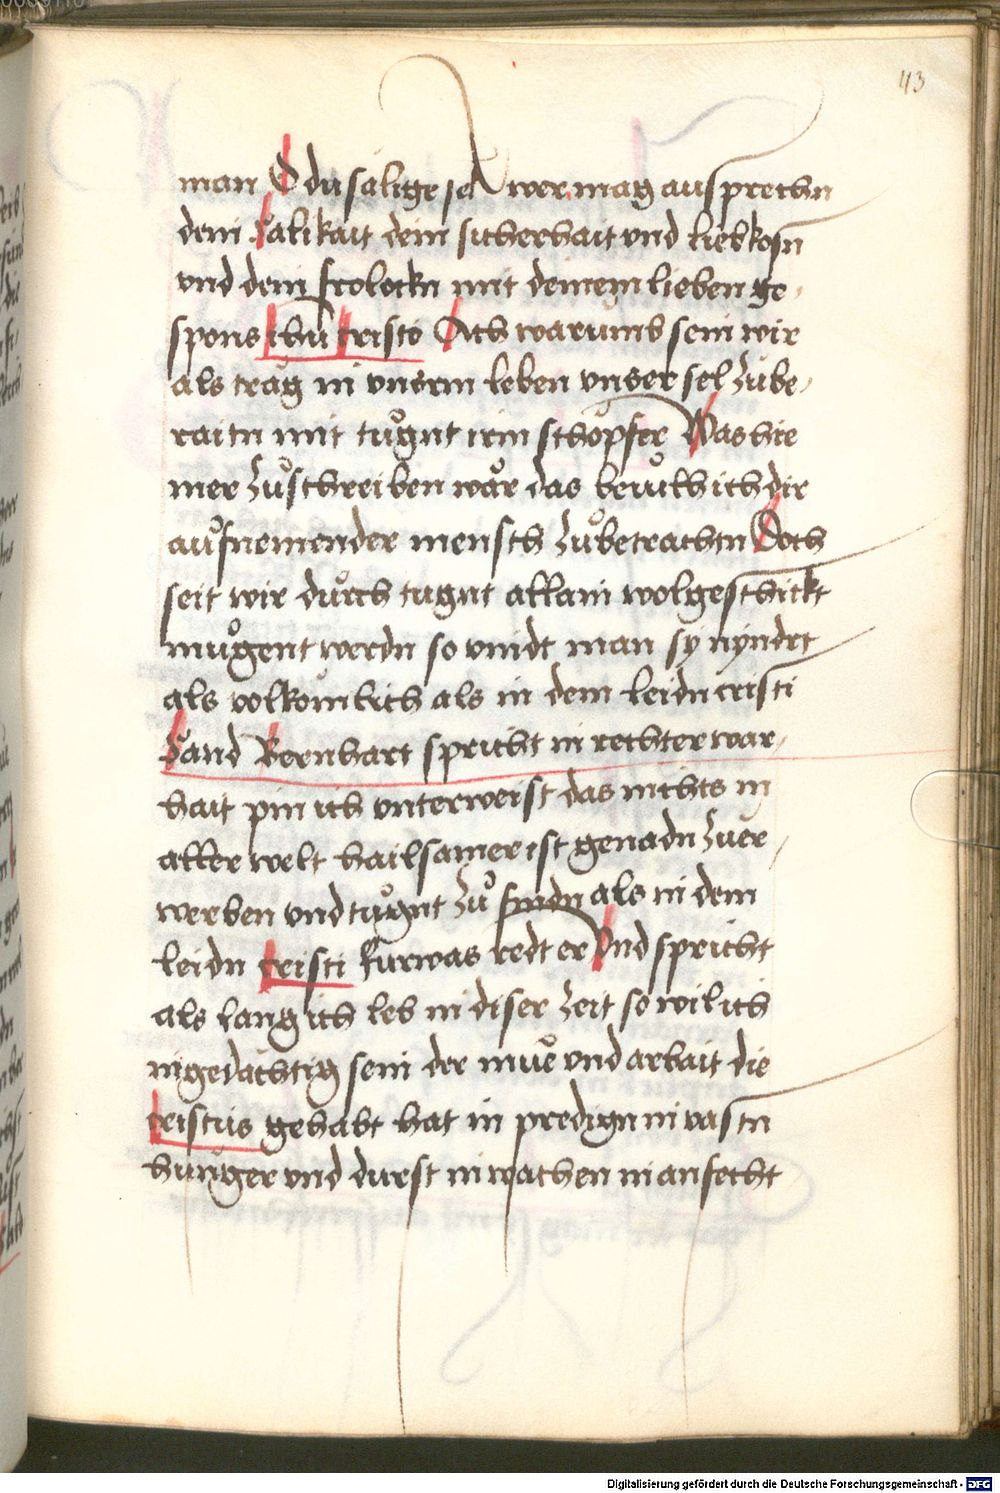 43
man O du salige sel wer mag aussprechn
dein Salikait dein sicherhait vnd liebkosn
vnd dein frolockn mit deinem lieben ge
spons ihu cristo Ach warumb sein wir
als trag in vnserm leben vnser sel zube
raitn mit tugnt irm schopfer Was hie
mer zuschreiben wär das beuilh ich dir
aufnemender mensch zubetrachtn Doch
seit wir durch tugnt allain wolgeschickt
mugent werdn so vindt man sy nyndrt
als volkomlich als in dem leidn cristi
Sand Bernhart spricht in rechter war
hait pin ich vnterweist das nichts in
aller welt hailsamer ist genadn zuer
werben vnd tugnt zu findn als in dem
leidn cristi Furwas redt er Vnd spricht
als lang ich leb in diser zeit so wil ich
ingedächtig sein der mue vnd arbait die
cristus gehabt hat in predign in vastn
hunger vnd durst in wachen in anfecht
Digitalisierung gefördert durch die Deutsche Forschungsgemeinschaft - DFG